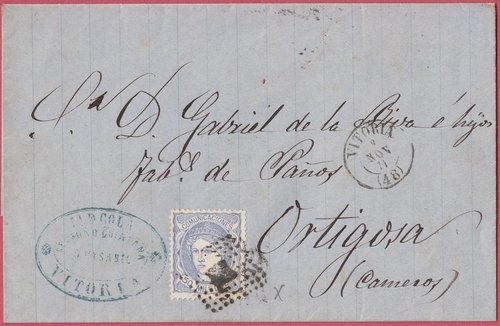 Sn. D. Gabriel de la Riva é hijos
Fabs. de Paños
Ortigosa
(Cameros)
VITORIA
NOV
(48)
COMUNICACIONES
50
VITORIA
X